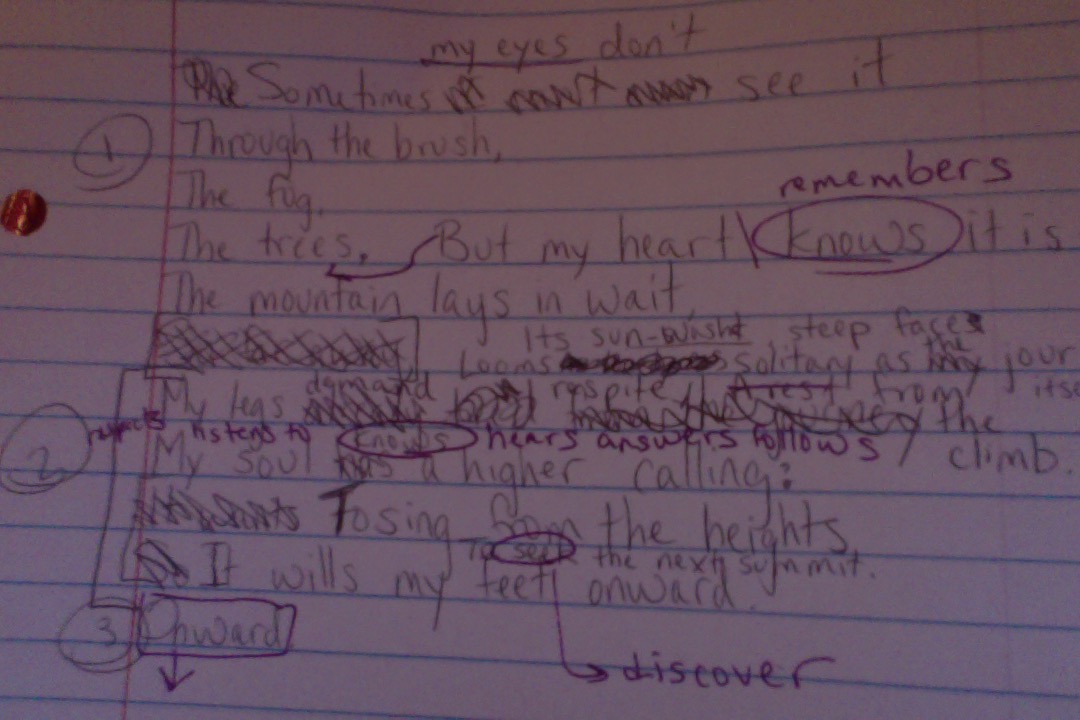 my eyes don't
Sometimes see it
1 Through the brush,
The fog,
remembers
The trees, But my heart knows it is
The mountain lays in wait,
Its sun-washt, steep faces
Looms solitary as the jour
demand respite
My legs A rest from the
listens to knows hears answers follows
2 climb.
My soul has a higher calling:
To sing from the heights,
To see the next summit.
It wills my feet onward.
3 Onward
discover